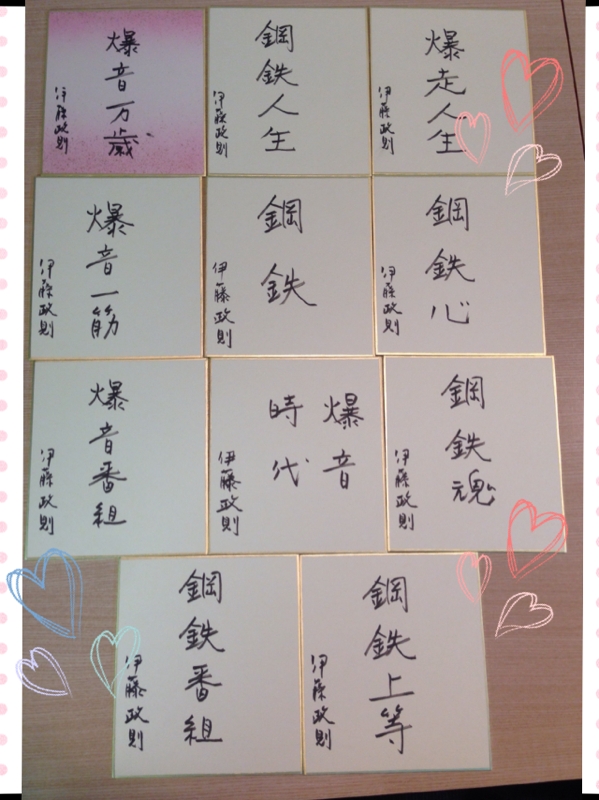 爆音万歳
伊藤政則
鋼鉄人生
伊藤政則
爆走人生
伊藤政則
爆音一筋
伊藤政則
鋼鉄
伊藤政則
鋼鉄心
伊藤政則
爆音番組
伊藤政則
爆音
時代
伊藤政則
鋼鉄魂
伊藤政則
鋼鉄番組
伊藤政則
鋼鉄上等
伊藤政則